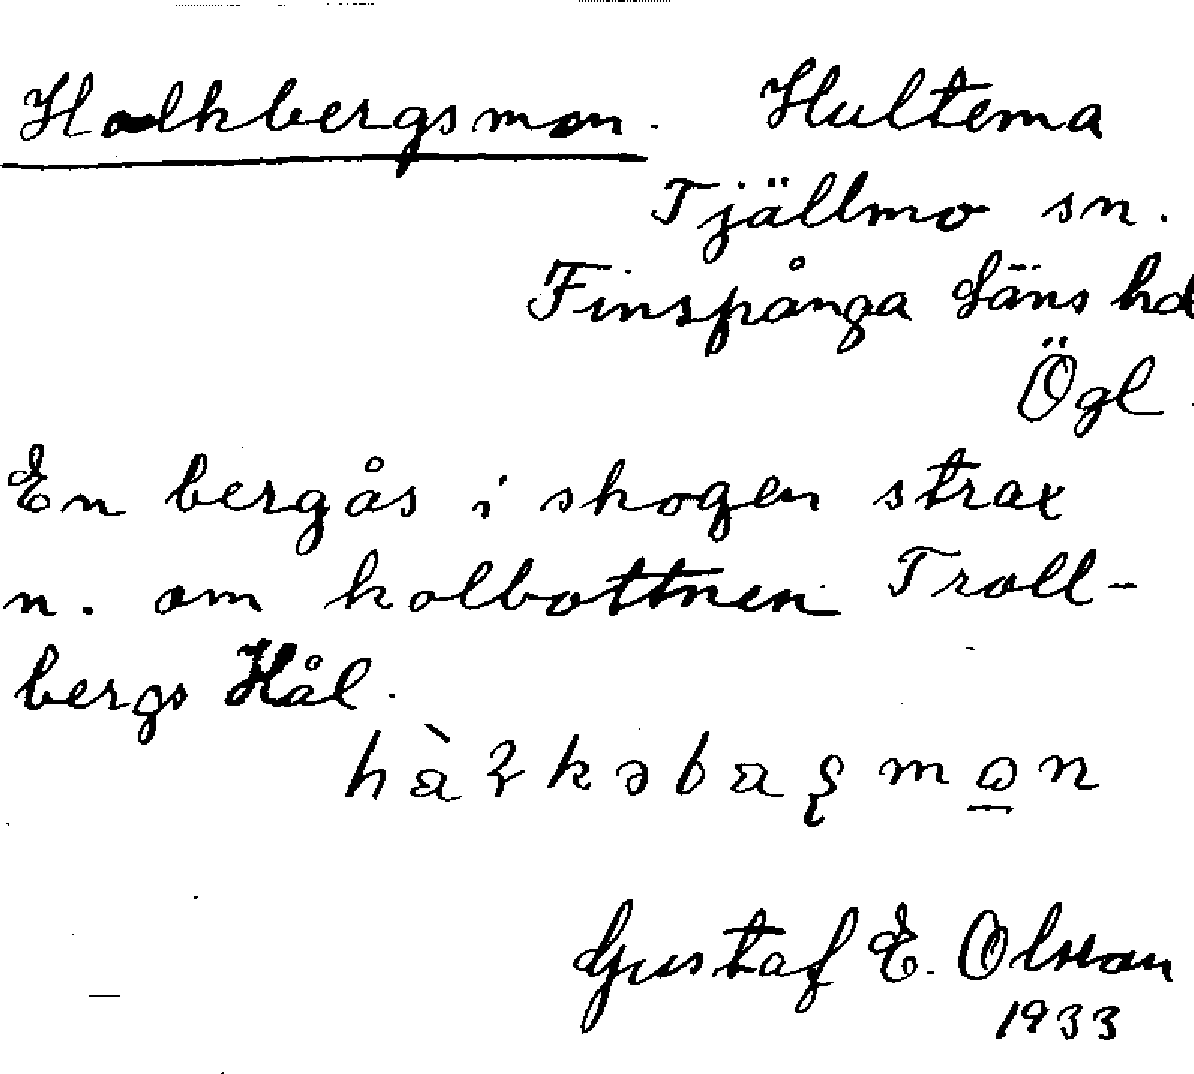 Halkbergsmon. Hultema
Tjällmo sn.
Finspånga Läns hd
Ögl.
En bergås i skogen strax
n. om kolbottnen Troll-
bergs Hål.
Gustaf E. Olsson
1933